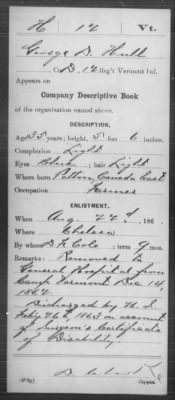 H 12 Vt.
George D. Hull
Co. D, 12 Reg't Vermont Inf.
Appears on
Company Descriptive Book
of the organization named above.
DESCRIPTION.
Age 35 years; height 5 feet 6 inches.
Complexion Light
Eyes Blue ; hair Light
Where born Potton, Canada East
Occupation Farmer
ENLISTMENT.
When Aug. 22d, 186
Where Chelsea
By whom D. F. Cole ; term 9 mos.
Remarks: Removed to
General Hospital from
Camp Vermont Dec. 14,
1862
Discharged by U.S.
Feby 26th, 1863 on account
of Surgeon's Certificate
of Disability
Copyist.